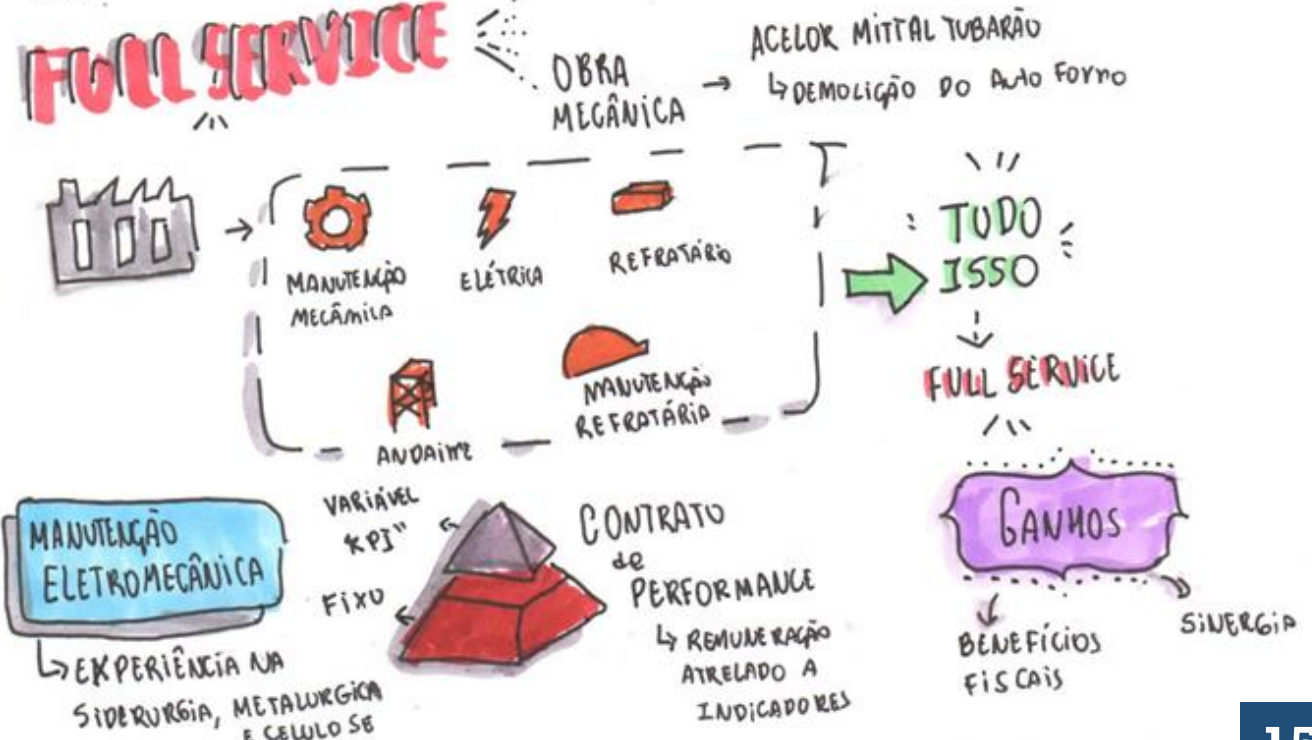 FULL SERVICE
OBRA
MECÂNICA
ACELOR MITTAL TUBARÃO
DEMOLIÇÃO DO Auto Forno
MANUTENÇÃO
MECÂNICA
ELÉTRICA
REFRATÁRIO
ANDAIME
MANUTENÇÃO
REFRATÁRIA
TUDO
ISSO
FULL SERVICE
GANHOS
BENEFÍCIOS
FISCAIS
SINERGIA
MANUTENÇÃO
ELETROMECÂNICA
EXPERIÊNCIA NA
SIDERURGIA, METALURGICA
E CELULOSE
VARIÁVEL
"KPI"
FIXO
CONTRATO
de
PERFORMANCE
REMUNERAÇÃO
ATRELADO A
INDICADORES